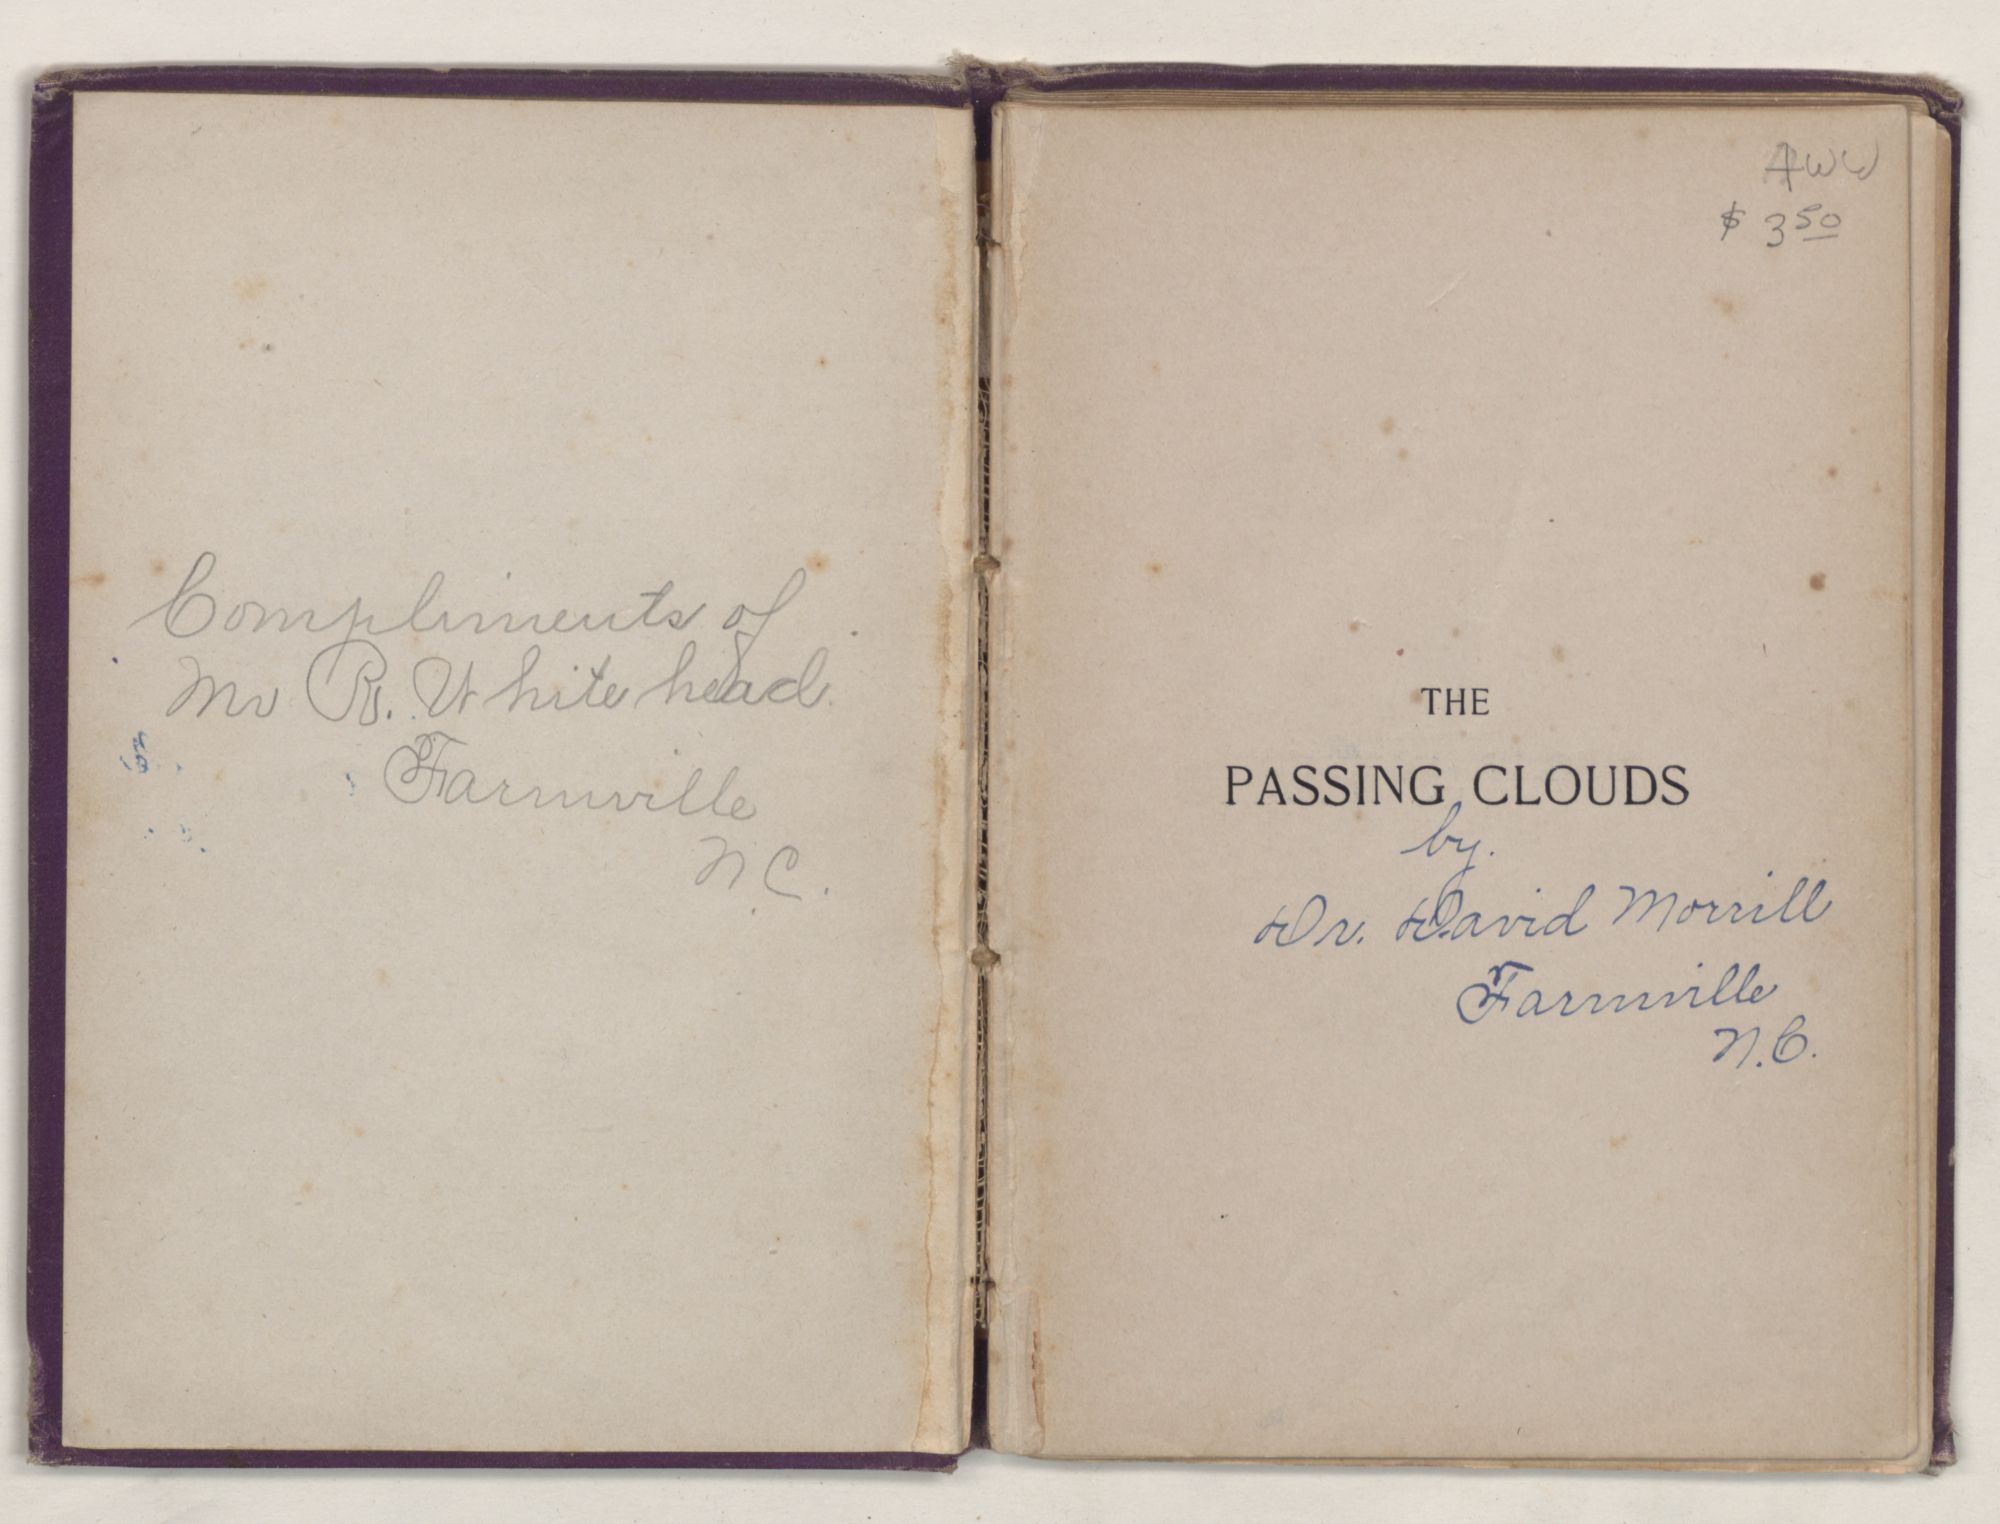 Compliments of
Mr R. Whitehead
Farmville
N C.
AWW
$ 3 50
THE
PASSING CLOUDS
by.
Dr. David Morrill
Farmville
N.C.